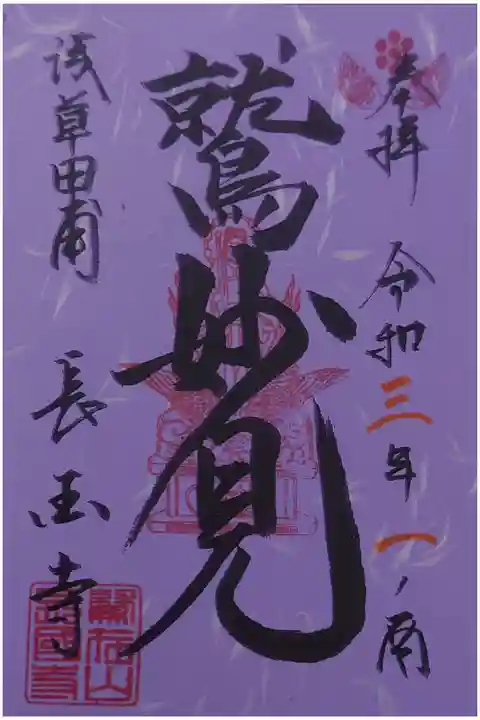 奉拝 令和三年一ノ酉
鷲妙見
浅草田甫 長国寺
鷲在山
長國寺